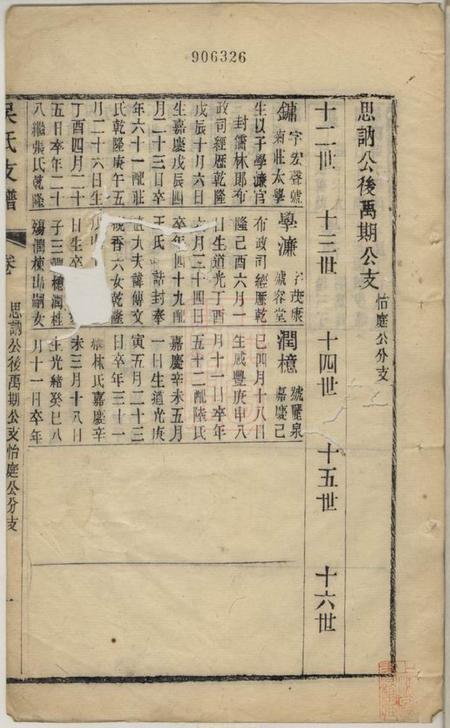 906326
思訥公後萬期公支
怡庭公分支
十二世
十三世
十四世
十五世
十六世
鏞 字宏聲號菊莊太學
生以子學濂官
封儒林郎布
政司經歷乾隆
戊辰十月六日
生嘉慶戊辰四
月二十三日卒
年六十一配莊
氏乾隆庚午五
月二十六日生
丁酉四月二十
五日卒年二十
八繼張氏乾隆
學濂 字茂康號容堂
布政司經歷乾
隆己酉六月一
日生道光丁酉
六月二十四日
卒年四十九配
王氏 誥封奉
傳文
女乾隆
子三潤檍潤桂
殤潤棟出嗣女
潤檍 號麗泉嘉慶己
巳四月十八日
生咸豐庚申八
月十一日卒年
五十二配陸氏
嘉慶辛未五月
一日生道光庚
寅五月二十三
日卒年三十一
林氏嘉慶辛
未三月十八日
生光緒癸巳八
月十一日卒年
吴氏支譜
卷
思訥公後萬期公支怡庭公分支
一